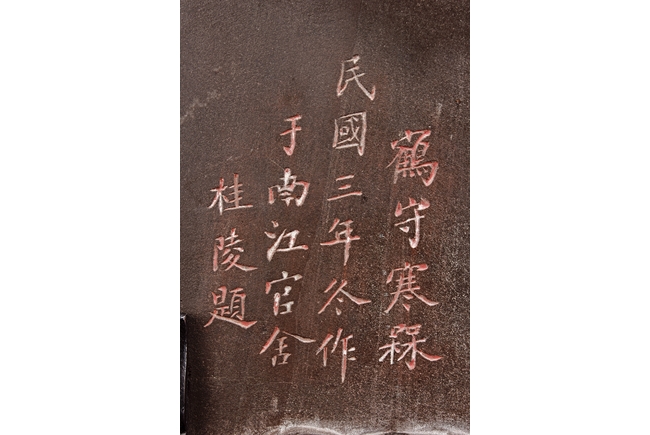 鶴守寒槑
民國三年冬作
于南江官舍
桂陵題